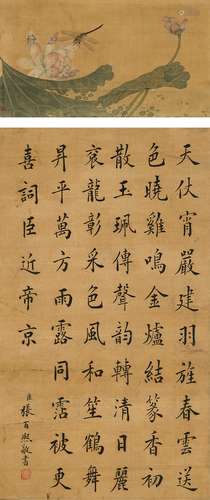 天仗宵嚴建羽旌春雲送
色曉雞鳴金爐結篆香初
散玉珮傳聲韵轉清日麗
袞龍彰采色風和笙鶴舞
昇平萬方雨露同霑被更
喜詞臣近帝京
臣張百熙敬書